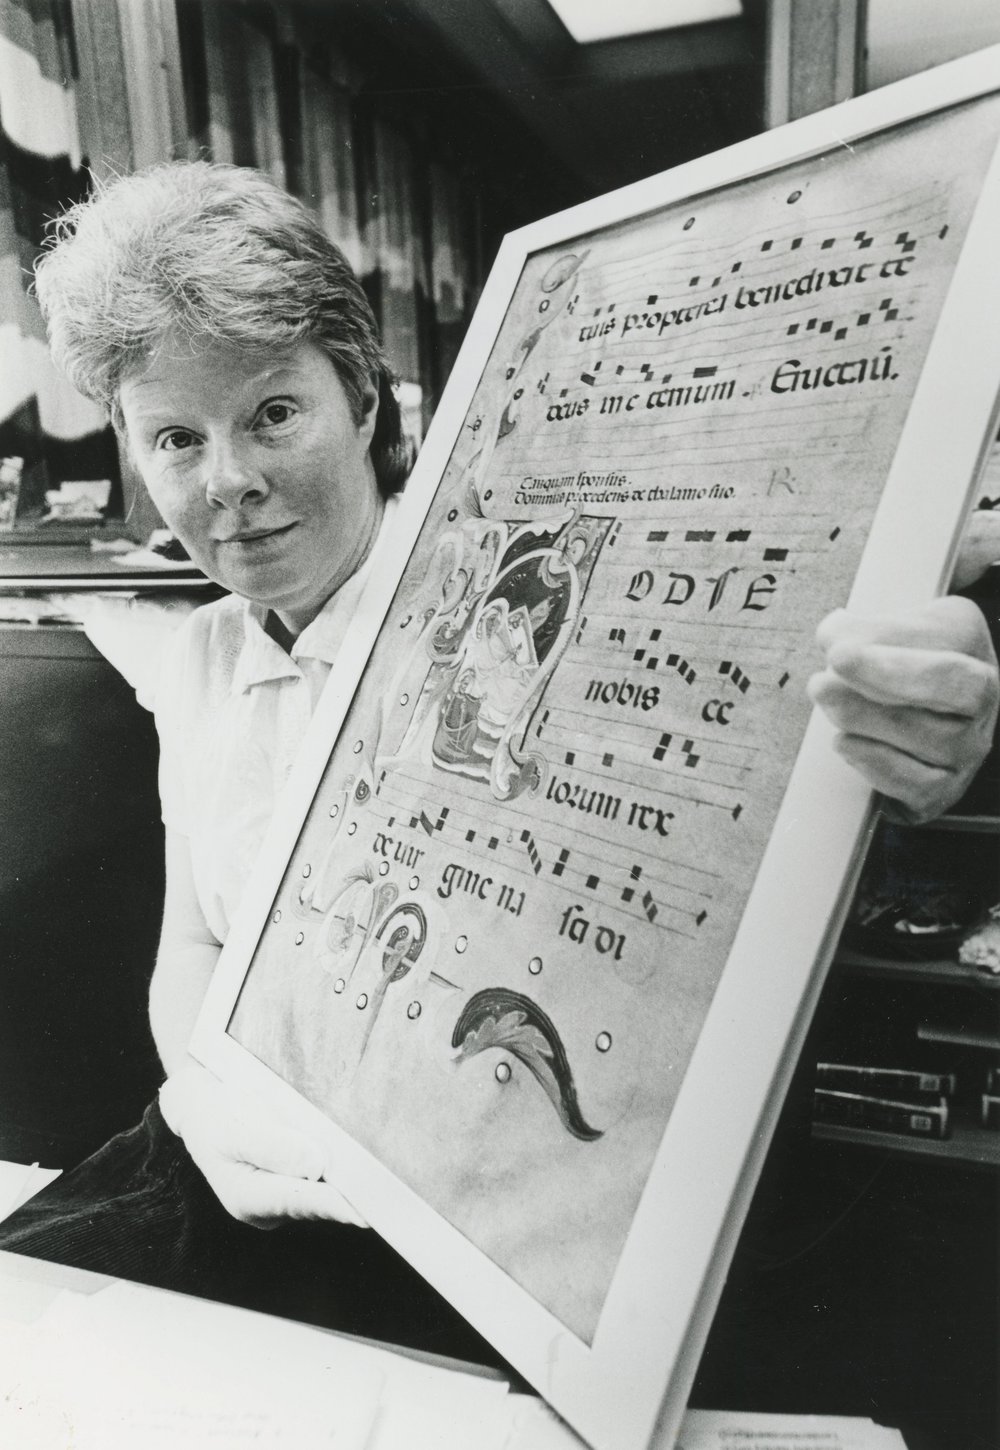 tuis propterea benedixit te
deus in e ternum . Eructaũ.
Tanquam sponsus.
Dominus procedens de thalamo suo. R.
H ODIE
nobis ce
lorum rex
de uir gine na sci di